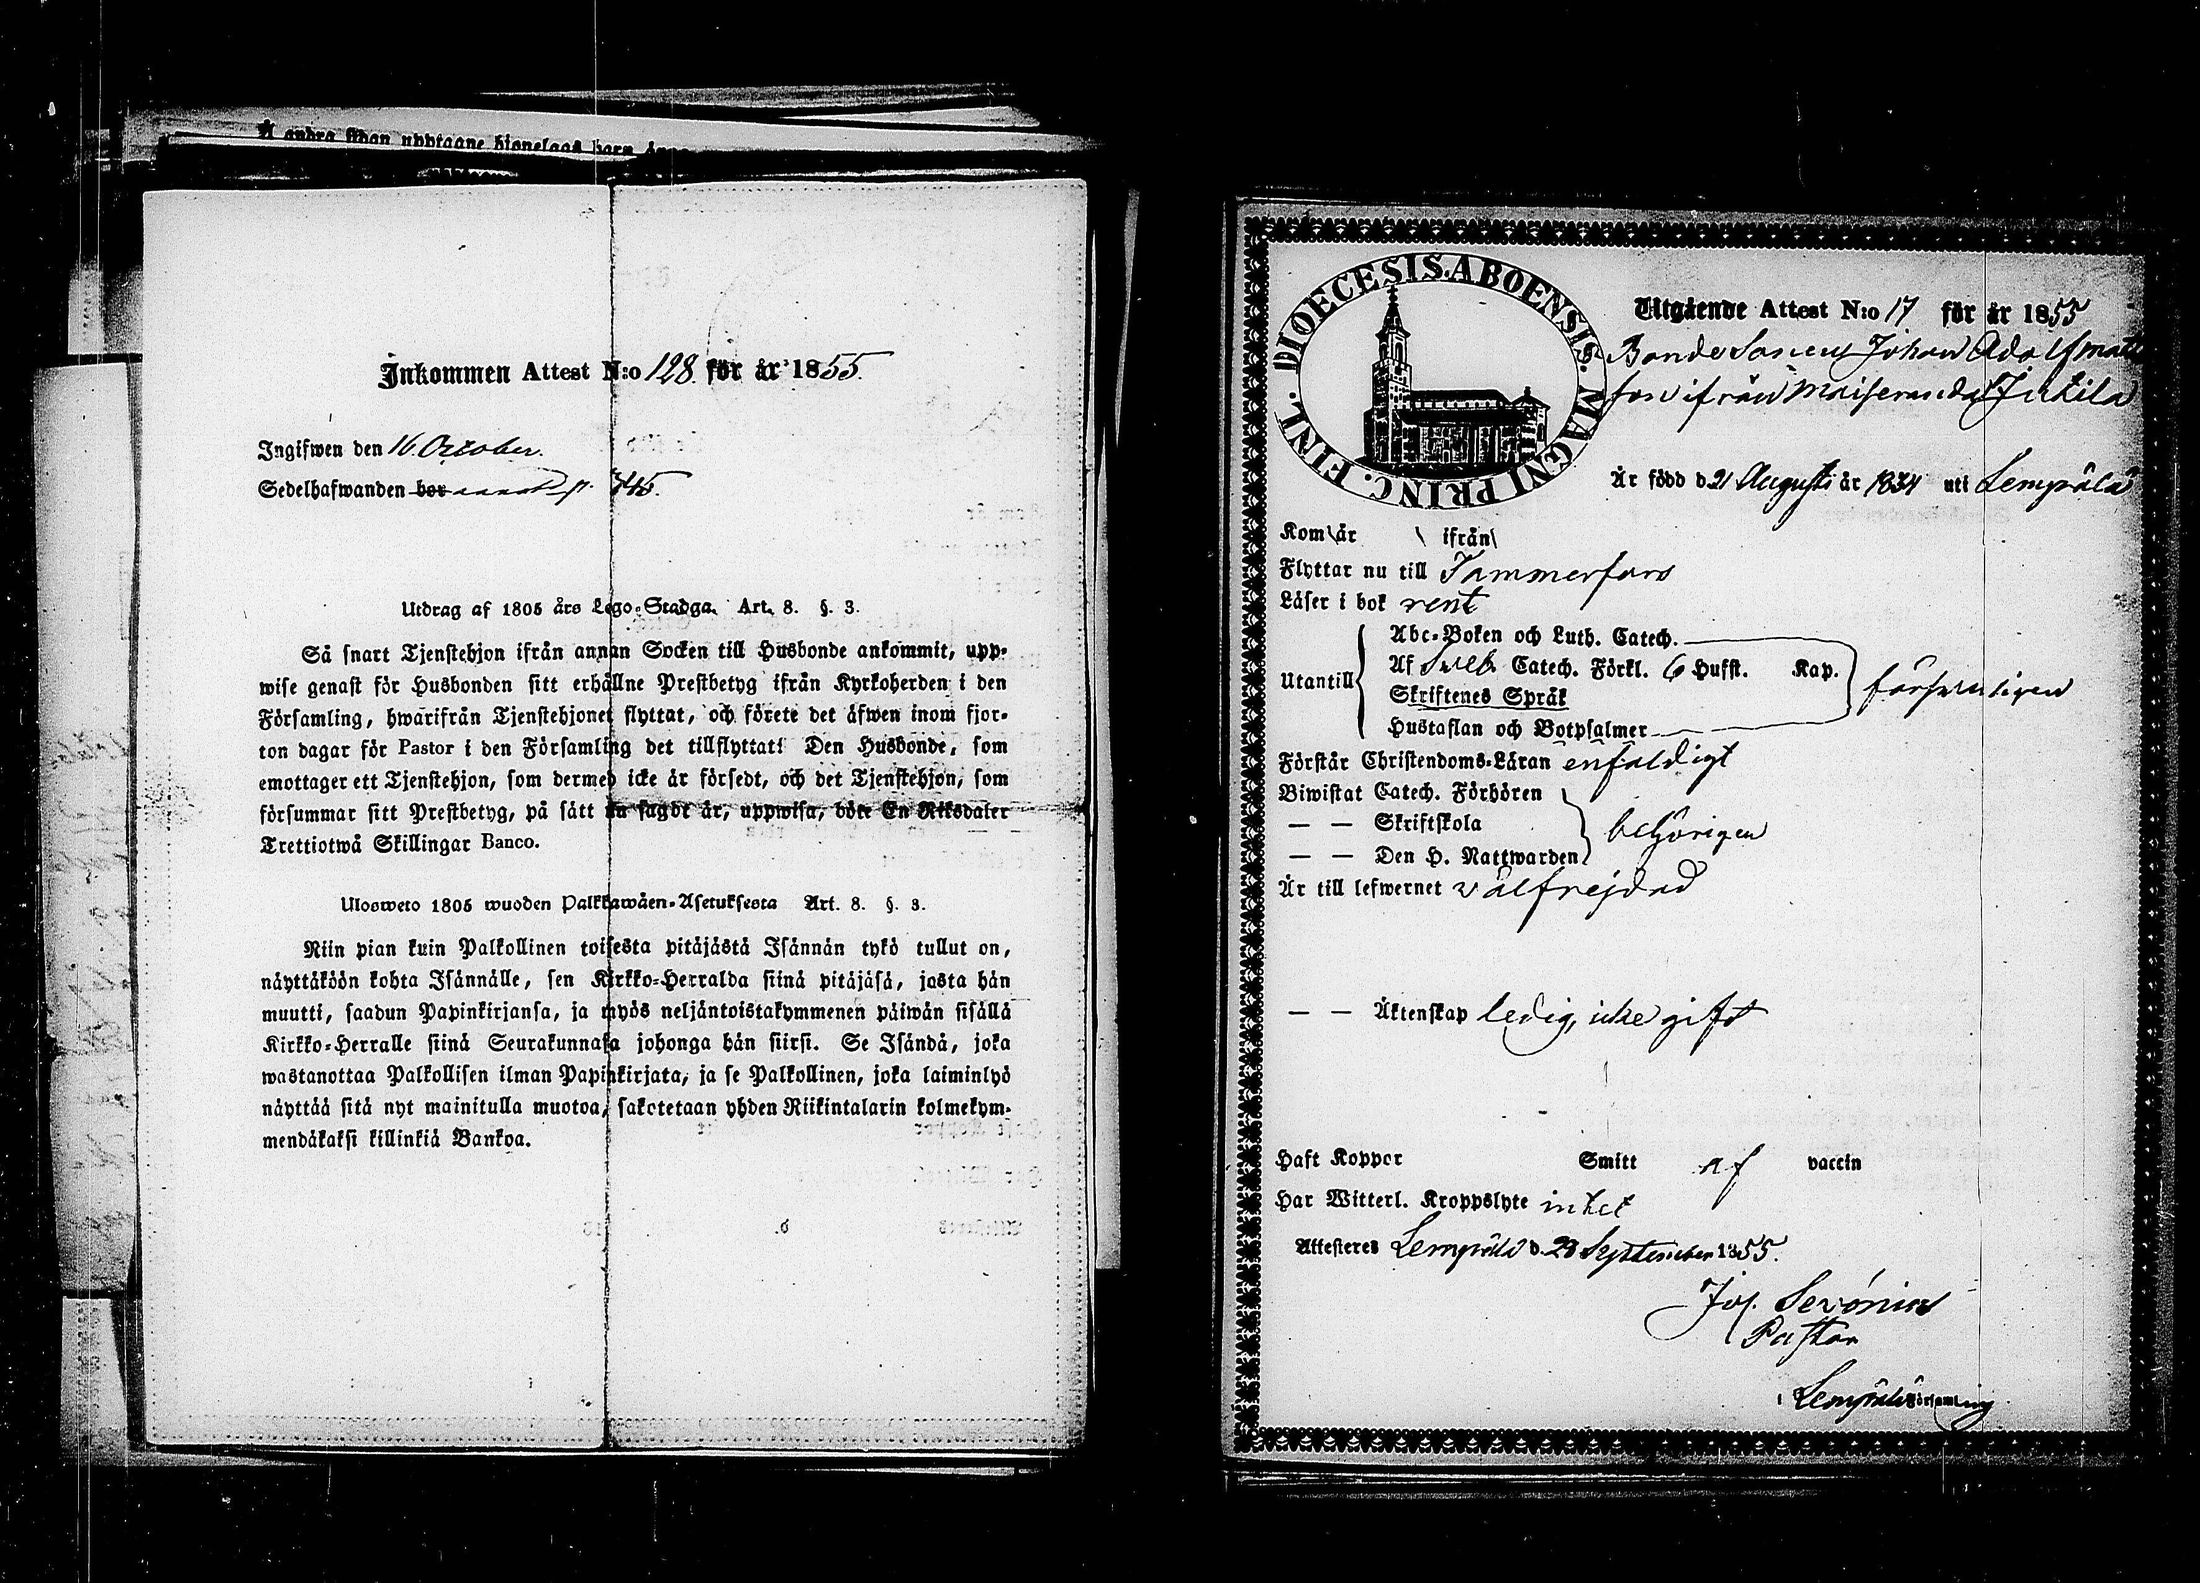 Inkommen Attest N:o 128. för år 1855.
Ingifwen den 16 October.
Sedelhafwanden bor p. 745.
Utdrag af 1805 års Lego-Stadga. Art. 8. §. 3.
Så snart Tjenstehjon ifrån annan Socken till Husbonde ankommit, upp-
wise genast för Husbonden sitt erhållne Prestbetyg ifrån Kyrkoherden i den
Församling, hwarifrån Tjenstehjonet flyttat, och förete det äfwen inom fjor-
ton dagar för Pastor i den Församling det tillflyttat! Den Husbonde, som
emottager ett Tjenstehjon, som dermed icke är försedt, och det Tjenstehjon, som
försummar sitt Prestbetyg, på sätt nu sagdt är, uppwisa, böte En Riksdaler
Trettiotwå Skillingar Banco.
Ulosweto 1805 wuoden Palkkawäen-Asetuksesta Art. 8. §. 3.
Niin pian kuin Palkollinen toisesta pitäjästä Isännän tykö tullut on,
näyttäköön kohta Isännälle, sen Kirkko-Herralda siinä pitäjäsä, josta hän
muutti, saadun Papinkirjansa, ja myös neljäntoistakymmenen päiwän sisällä
Kirkko-Herralle siinä Seurakunnasa johonga hän siirsi. Se Isändä, joka
wastanottaa Palkollisen ilman Papinkirjata, ja se Palkollinen, joka laiminlyö
näyttää sitä nyt mainitulla muotoa, sakotetaan yhden Riikintalarin kolmekym-
mendäkaksi killinkiä Bankoa.
DIOECESIS. ABOENSIS. MAGNI PRINC. FINL.
Utgående Attest N:o 17 för år 1855
Bonde Sonen Johan Adolf Matts
son ifrån Jutila
Är född d. 21 Augusti år 1834 uti Lempälä
Kom år ifrån
Flyttar nu till Tammerfors
Läser i bok rent
Abc-Boken och Luth. Catech.
Utantill Af Sveb. Catech. Förkl. 6 Hufst. Kap. försvarligen
Skriftenes Språk
Hustaflan och Botpsalmer
Förstår Christendoms-Läran enfaldigt
Biwistat Catech. Förhören
— — Skriftskola behörigen
— — Den H. Nattwarden
Är till lefwernet välfrejdad
— — Äktenskap ledig, icke gift
Haft Koppor Smitt af vaccin
Har Witterl. Kroppslyte intet
Attesteres Lempälä d. 23 September 1855.
Jos. Sevónius
Pastor
i Lempälä Församling